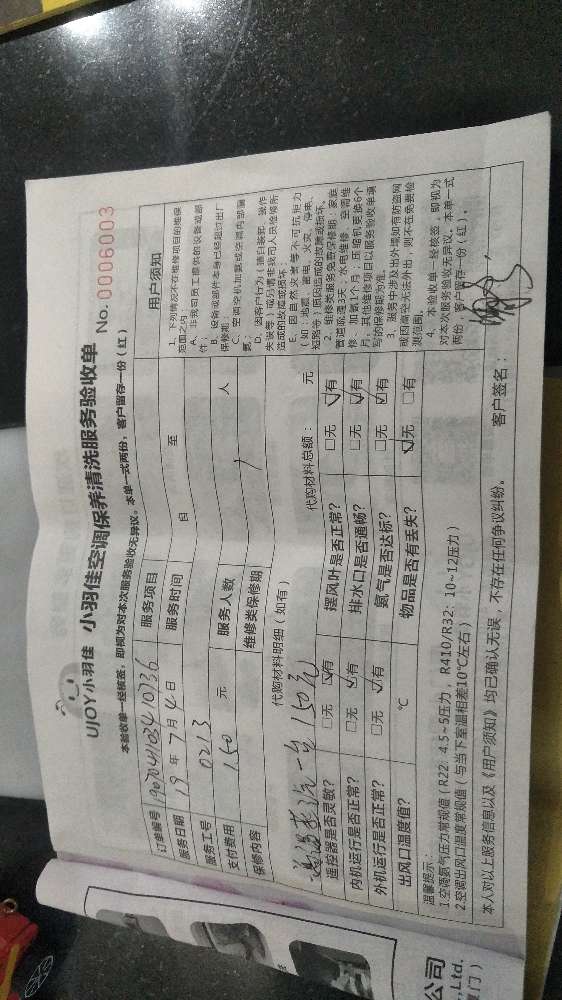 UJOY小羽佳 小羽佳空调保养清洗服务验收单 No. 0006003
本验收单一经核签，即视为对本次服务验收无异议。本单一式两份，客户留存一份（红）
订单编号 190704103410736 服务项目
服务日期 19年7月4日 服务时间 自 至
服务工号 0213
支付费用 150 元 服务人数 人
保修内容 维修类保修期
代购材料明细（如有） 代购材料总额： 元
一台150元
遥控器是否灵敏？ □无 ☑有 摆风叶是否正常？ □无 ☑有
内机运行是否正常？ □无 ☑有 排水口是否通畅？ □无 ☑有
外机运行是否正常？ □无 ☑有 氨气是否达标？ □无 ☑有
出风口温度值？ ℃ 物品是否有丢失？ ☑无 □有
用户须知
1. 下列情况不在维修项目的维保范围之内
A. 非我司员工提供的设备或部件；
B. 设备或部件本身已经超过出厂保修期
D. 因客户行为（擅自装卸、操作失误等）或外请非我司人员维修所造成的故障或损坏；
E. 因自然灾害等不可抗拒力（如：地震、雷电、火灾、停电、短路等）原因造成的故障或损坏。
2. 维修类服务免费保修期：家庭管道疏通3天；水电维修、空调维修、加氨1个月；压缩机更换6个月；其他维修项目以服务验收单填写的保修期为准。
3. 服务中涉及出外墙如有防盗网或因高空无法外出，则不在免费检测范围；
4. 本验收单一经核签，即视为对本次服务验收无异议。本单一式两份，客户留存一份（红）。
温馨提示：
1.空调氨气压力常规值（R22: 4.5~5压力，R410/R32: 10~12压力）
2.空调出风口温度常规值（与当下室温相差10℃左右）
本人对以上服务信息以及《用户须知》均已确认无误，不存在任何争议纠纷。 客户签名：
公司
Ltd.
门）